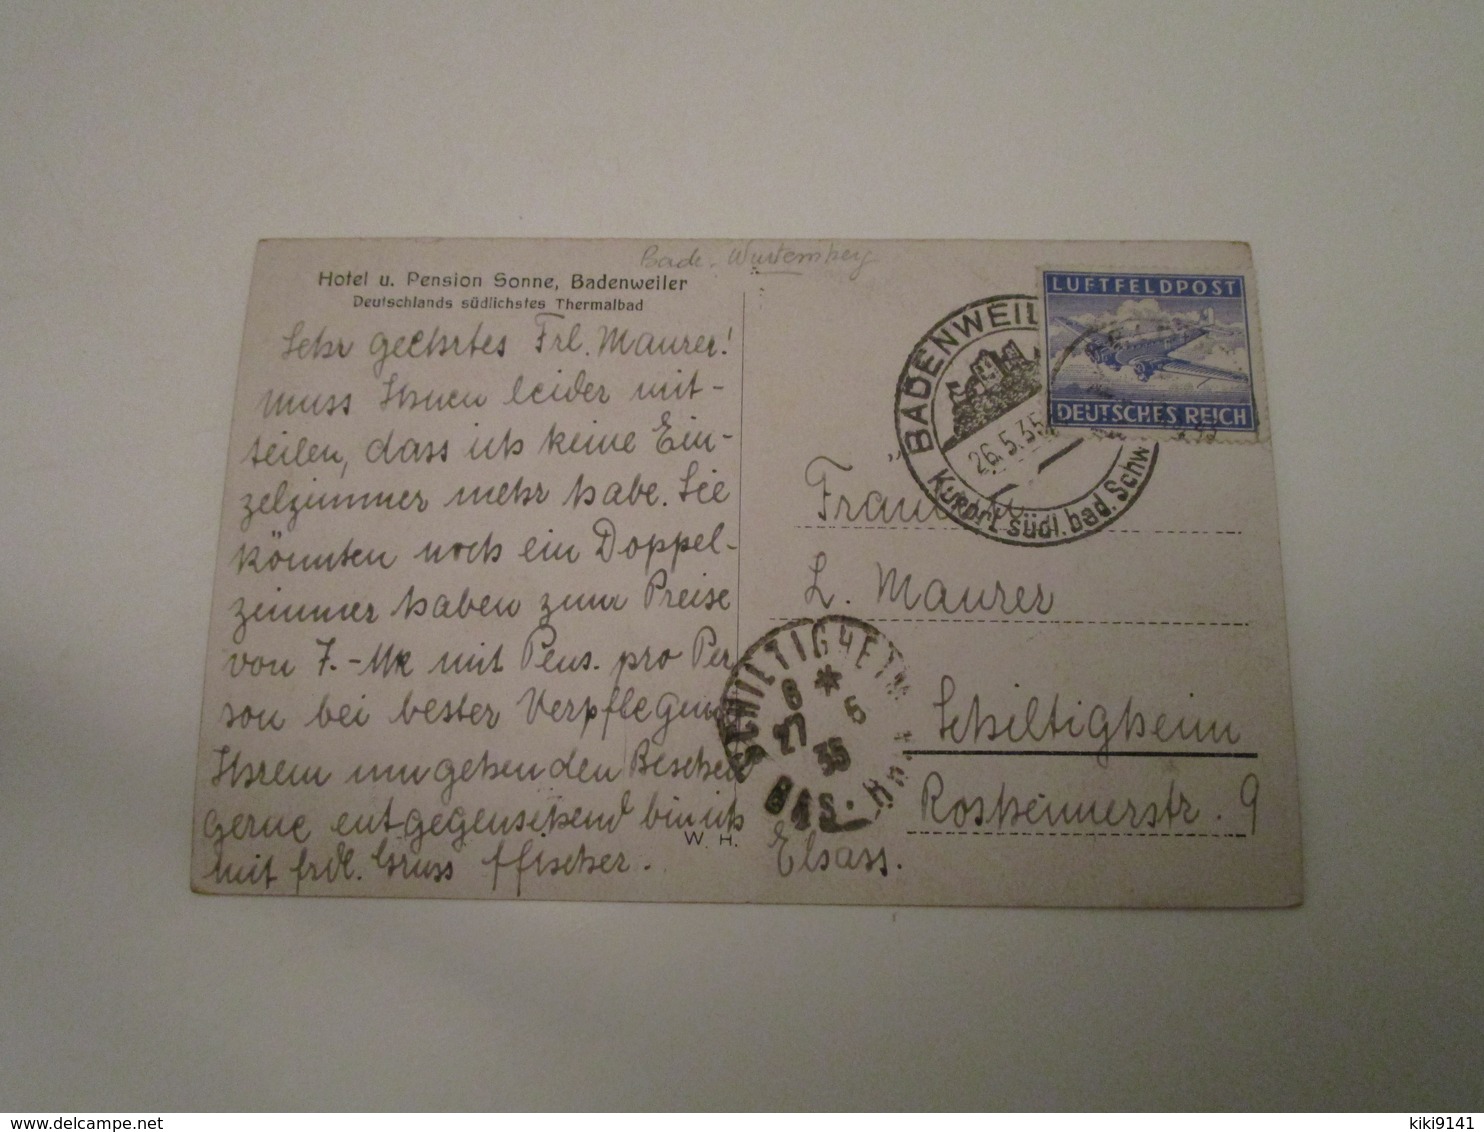 Bade. Wurtemberg
Hotel u. Pension Sonne, Badenweiler
Deutschlands südlichstes Thermalbad
Sehr geehrtes Frl. Maurer!
muss Ihnen leider mit-
teilen, dass ich keine Ein-
zelzimmer mehr habe. Sie
könnten noch ein Doppel-
zimmer haben zum Preise
von 7.-Mk mit Pens. pro Per
son bei bester Verpflegung
Ihrem umgehenden Bescheid
gerne entgegensehend bin ich
mit frdl. Gruss Fischer.
W. H.
LUFTFELDPOST
DEUTSCHES REICH
BADENWEIL
26.5.35
Kurort südl. bad. Schw
Fräulein
L. Maurer
Schiltigheim
Rosheimerstr. 9
Elsass.
SCHILTIGHEIM
6 * 5
27
35
BAS-
delcampe.net
kiki9141